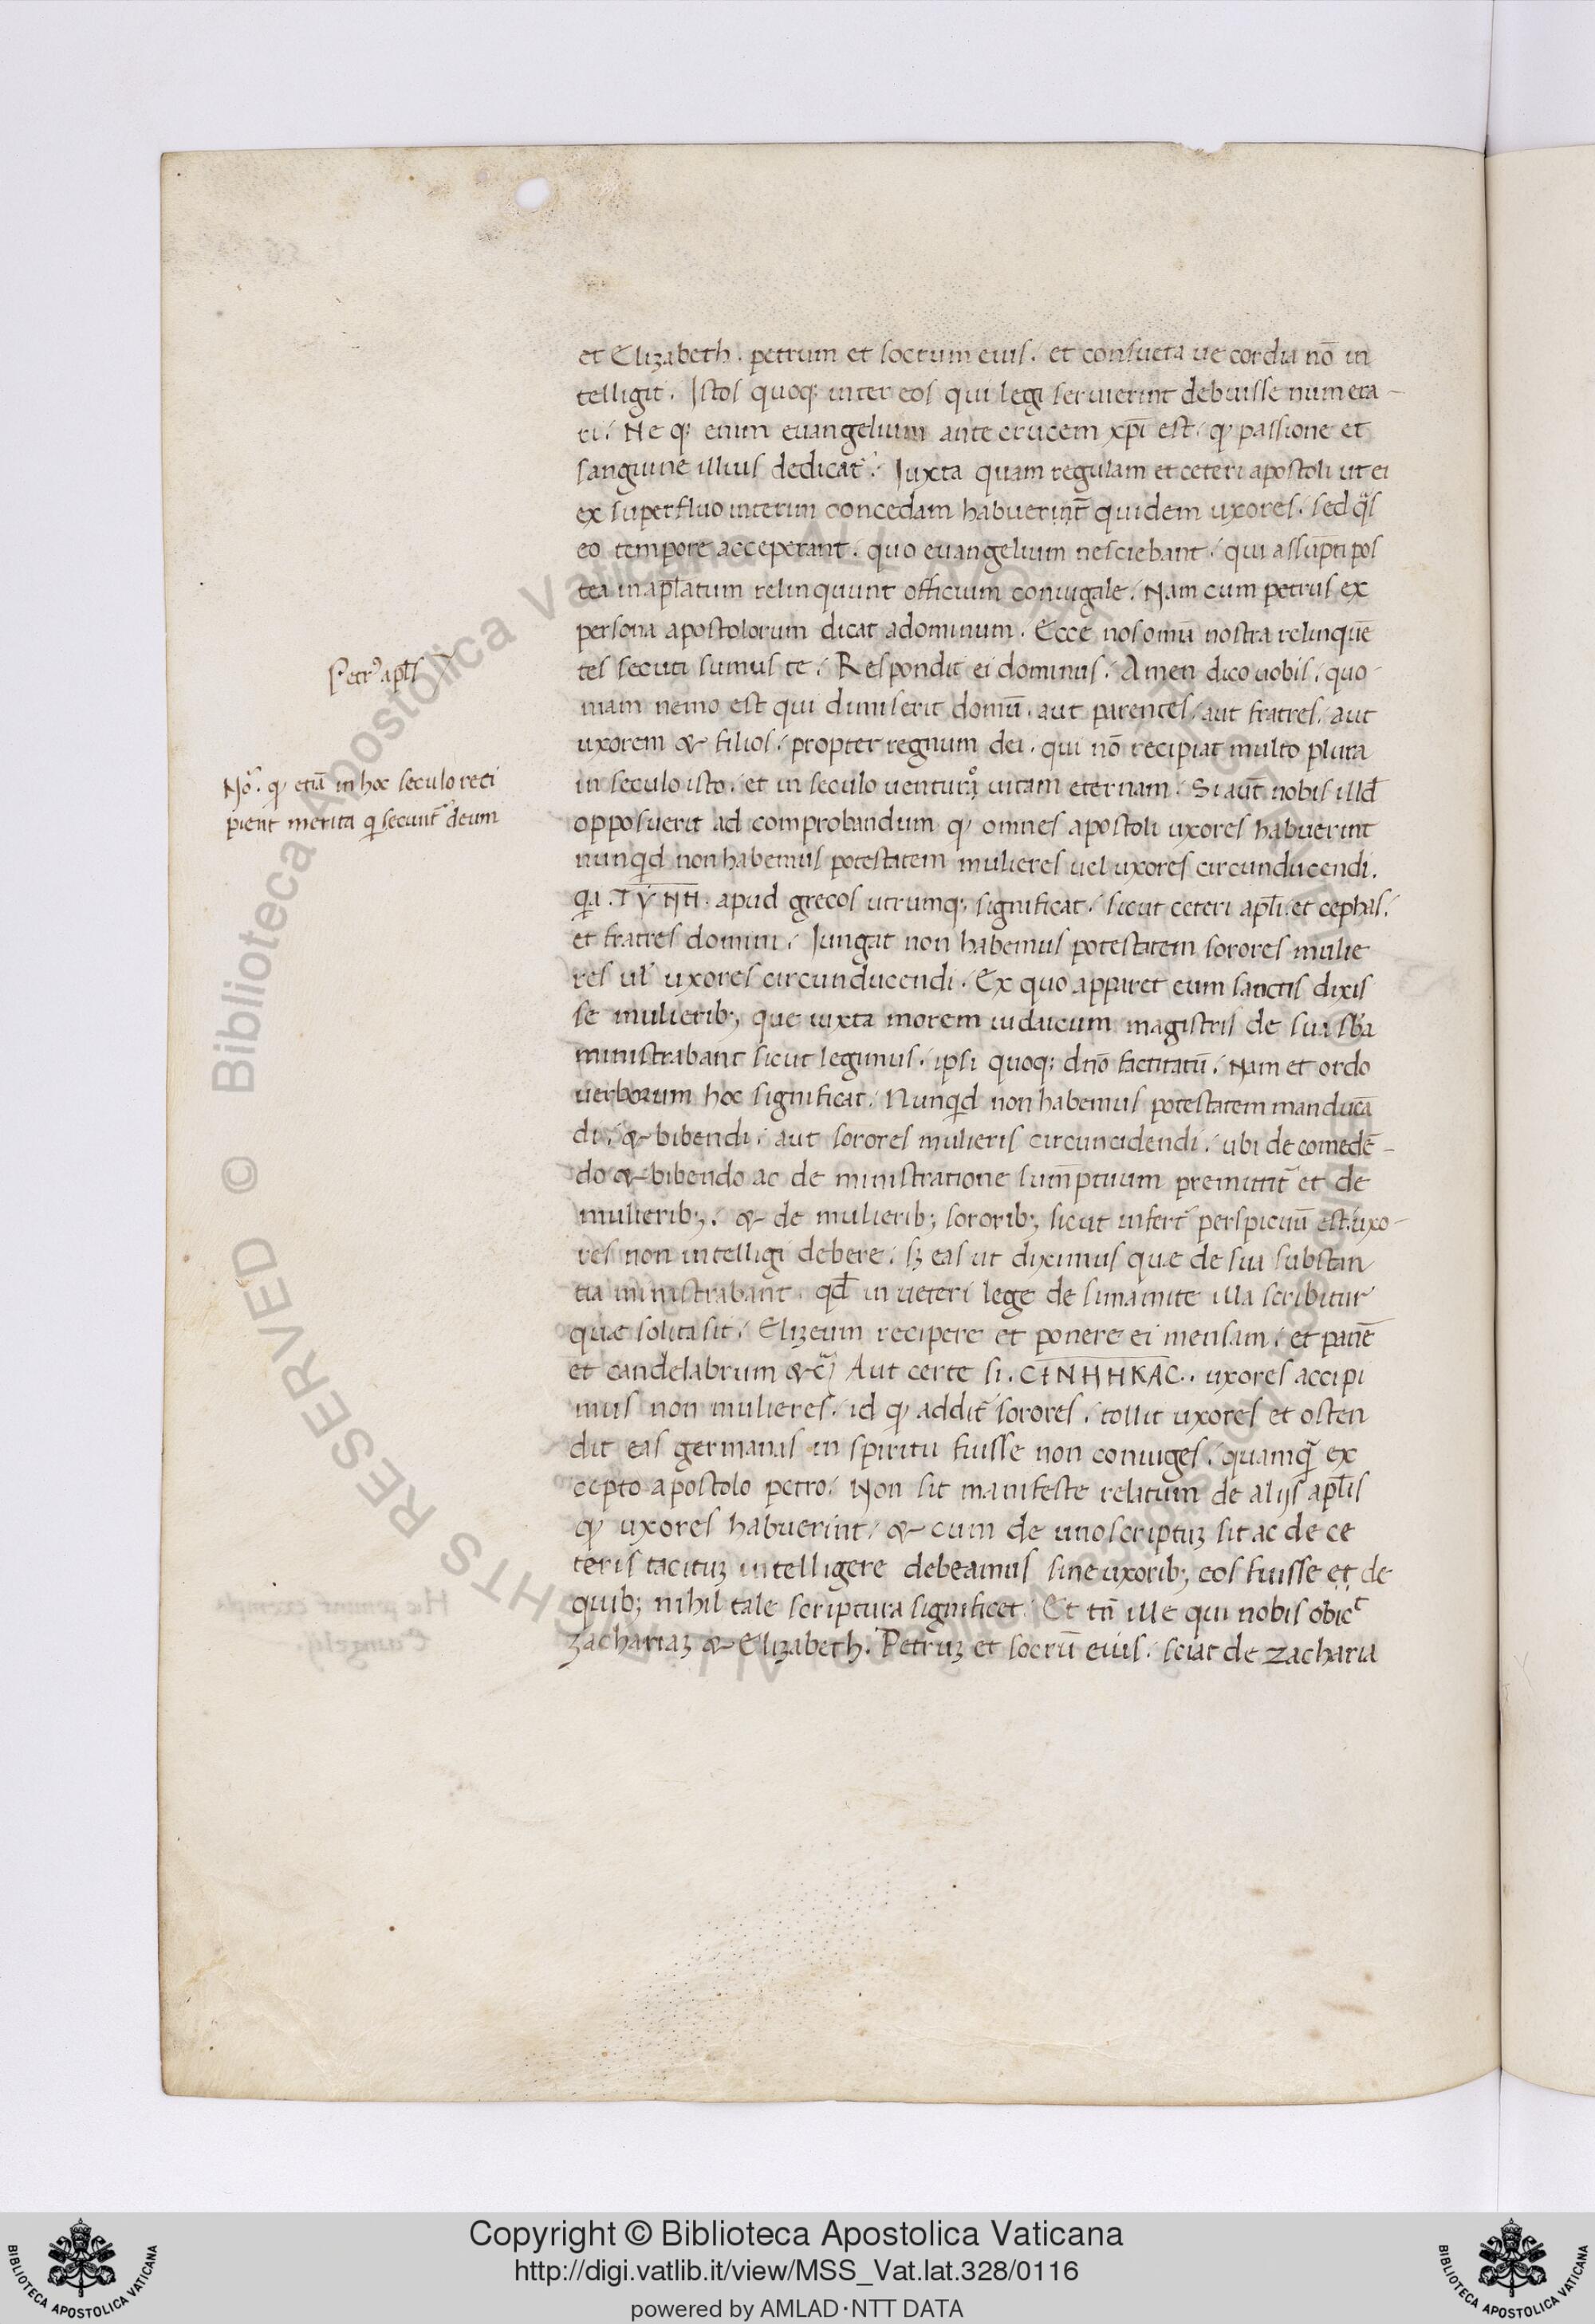 et Elizabeth. petrum et socrum eius. et consueta uecordia nō in
telligit. Istos quoq; inter eos qui legi seruierint debuisse numera-
ri. Neq; enim euangelium ante crucem xp̄i est. qɔ passione et
sanguine illius dedicat̄. Iuxta quam regulam et ceteri apostoli ut ei
ex superfluo interim concedam habuerint quidem uxores. sed q̄s
eo tempore acceperant. quo euangelium nesciebant. qui assūpti pos
tea in ap̄latum relinquunt officium coniugale. Nam cum petrus ex
persona apostolorum dicat adominum. Ecce nos omīa nostra relinquē
tes secuti sumus te. Respondit ei dominus. Amen dico uobis. quo-
niam nemo est qui dimiserit domū. aut parentes. aut fratres. aut
uxorem & filios. propter regnum dei. qui nō recipiat multo plura
in seculo isto. et in seculo venturo uitam eternam. Si aut̄ nobis illd̄
opposuerit ad comprobandum qɔ omnes apostoli uxores habuerint
nunqd non habemus potestatem mulieres uel uxores circunducendi.
qa. ΓΥΝΗ. apud grecos utrumq; significat. sicut ceteri apl̄i et cephas.
et fratres domini. Iungat non habemus potestatem sorores mulie
res ul' uxores circunducendi. Ex quo apparet eum sanctis dixis
se mulierib; que iuxta morem iudaicum magistris de sua sb̄a
ministrabant sicut legimus. ipsi quoq; dn̄o factitatū. Nam et ordo
uerborum hoc significat. Nunqd non habemus potestatem manducā
di. & bibendi. aut sorores mulieris circuncidendi. ubi de comedē-
do & bibendo ac de ministratione sum̄ptuum premittit̄ et de
mulierib;. & de mulierib; sororib; sicut infert̄ perspicuū est. uxo-
res non intelligi debere. sꝫ eas ut diximus quæ de sua substan
tia ministrabant. qd̄ in ueteri lege de sunamite illa scribitur
quæ solita sit. Elizeum recipere et ponere ei mensam. et panē
et candelabrum &c̃ Aut certe si. CΙΝΗΗΚΑC. uxores accipi
mus non mulieres. id qɔ addit̄ sorores. tollit uxores et osten
dit eas germanas in spiritu fuisse non coniuges. quamq̄ ex
cepto apostolo petro. Non sit manifeste relatum de alijs apl̄is
qɔ uxores habuerint. & cum de uno scriptuꝫ sit ac de ce
teris tacituꝫ intelligere debeamus sine uxorib; eos fuisse et de
quib; nihil tale scriptura significet. Et tn̄ ille qui nobis obict
zachariaꝫ & Elizabeth. Petruꝫ et socrū eius. sciat de zacharia
Petr⁹ apl̄s
No. qɔ etiā in hoc seculo reci
pient merita q secunt̄ deum
Copyright © Biblioteca Apostolica Vaticana
http://digi.vatlib.it/view/MSS_Vat.lat.328/0116
powered by AMLAD·NTT DATA
BIBLIOTECA APOSTOLICA VATICANA
BIBLIOTECA APOSTOLICA VATICANA